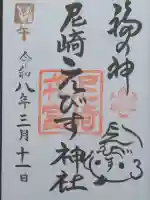 福の神
尼崎えびす神社
午
令和八年三月十一日